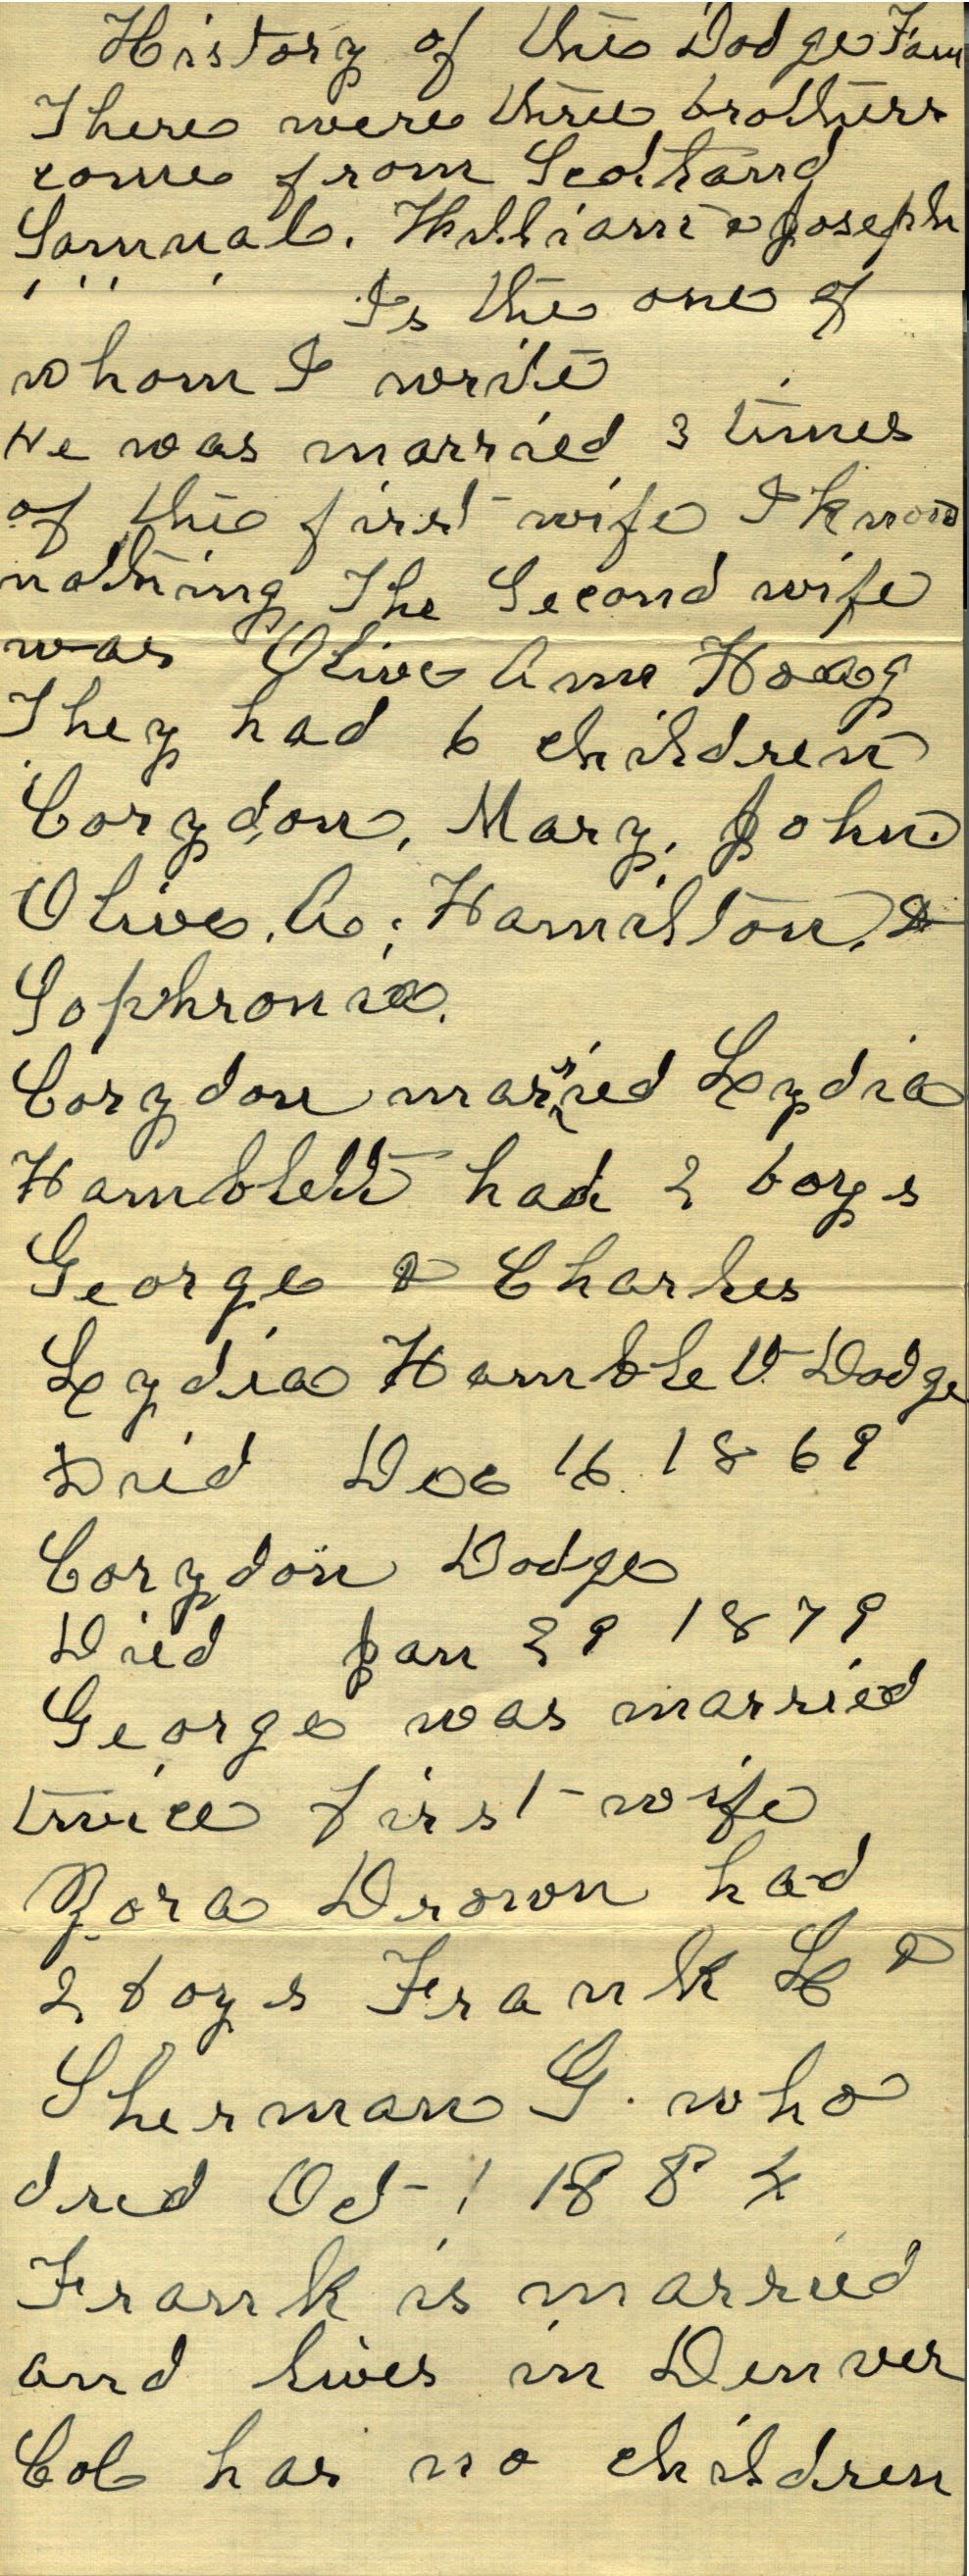 History of the Dodge Fam
There were three brothers
come from Scotland
Samual. William & Joseph
' ' ' ' Is the one of
whom I write
He was married 3 times
of the first wife I know
nothing The Second wife
was Olive Ann Hoag
They had 6 children
Corydon, Mary, John.
Olive. A, Hamilton, &
Sophronia.
Corydon married Lydia
Hamblett had 2 boys
George & Charles
Lydia Hamblett Dodge
Died Dec 16 1869
Corydon Dodge
Died Jan 29 1879
George was married
twice first wife
Zora Drown had
2 boys Frank L &
Sherman G. who
died Oct 1 1884
Frank is married
and lives in Denver
Col has no children